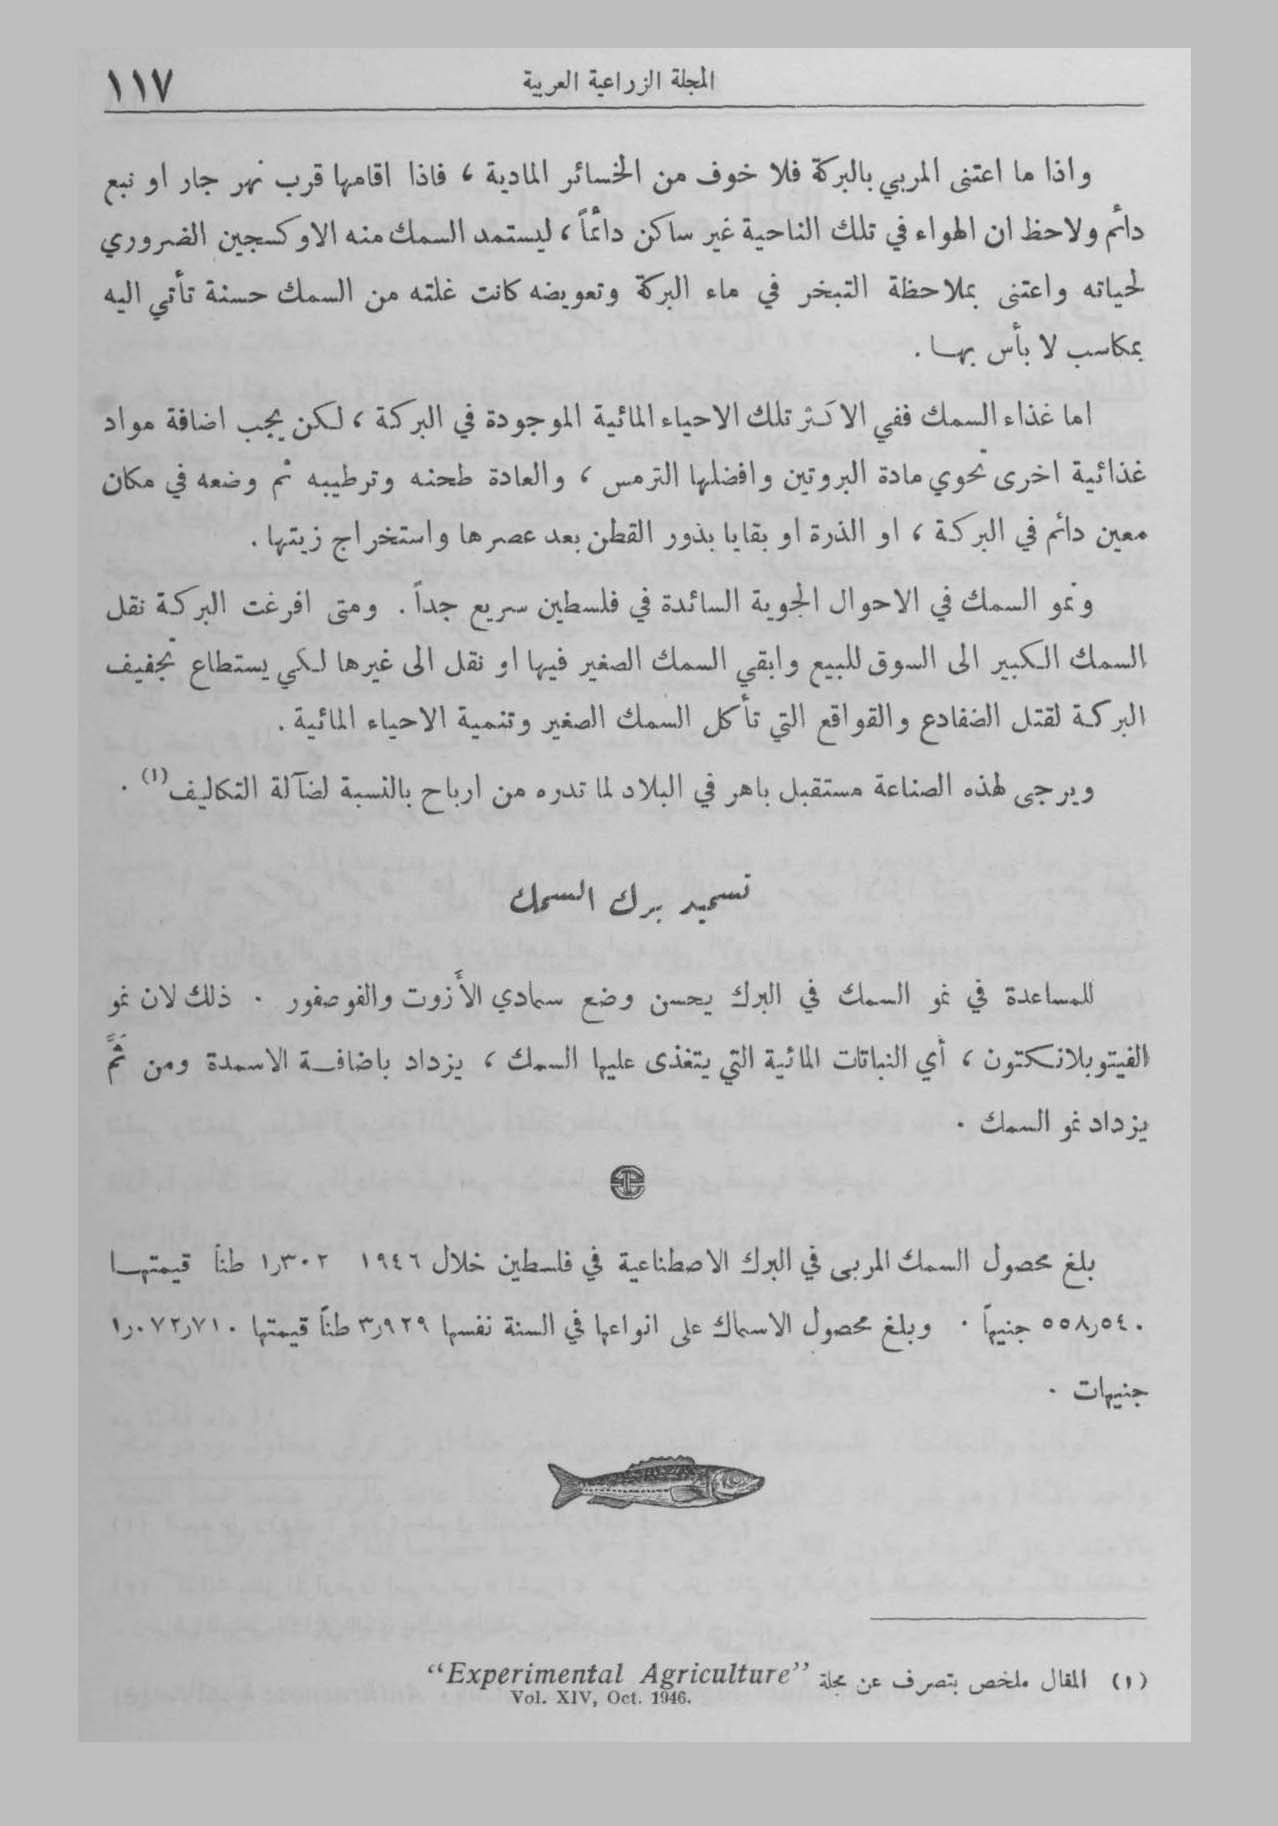 المجلة الزراعية العربية ١١٧
واذا ما اعتنى المربي بالبركة فلا خوف من الخسائر المادية ، فاذا اقامها قرب نهر جار او نبع
دائم ولاحظ ان الهواء في تلك الناحية غير ساكن دائماً ، ليستمد السمك منه الاوكسجين الضروري
لحياته واعتنى بملاحظة التبخر في ماء البركة وتعويضه كانت غلته من السمك حسنة تأتي اليه
بمكاسب لا بأس بها .
اما غذاء السمك ففي الاكثر تلك الاحياء المائية الموجودة في البركة ، لكن يجب اضافة مواد
غذائية اخرى تحوي مادة البروتين وافضلها الترمس ، والعادة طحنه وترطيبه ثم وضعه في مكان
معين دائم في البركة ، او الذرة او بقايا بذور القطن بعد عصرها واستخراج زيتها .
ونمو السمك في الاحوال الجوية السائدة في فلسطين سريع جداً . ومتى افرغت البركة نقل
السمك الكبير الى السوق للبيع وابقي السمك الصغير فيها او نقل الى غيرها لكي يستطاع تجفيف
البركة لقتل الضفادع والقواقع التي تأكل السمك الصغير وتنمية الاحياء المائية .
ويرجى لهذه الصناعة مستقبل باهر في البلاد لما تدره من ارباح بالنسبة لضآلة التكاليف(١) .
تسميد برك السمك
للمساعدة في نمو السمك في البرك يحسن وضع سمادي الأزوت والفوصفور . ذلك لان نمو
الفيتوبلانكتون ، أي النباتات المائية التي يتغذى عليها السمك ، يزداد باضافة الاسمدة ومن ثَمَّ
يزداد نمو السمك .
بلغ محصول السمك المربى في البرك الاصطناعية في فلسطين خلال ١٩٤٦ ١٫٣٠٢ طناً قيمتها
٥٥٨٫٥٤٠ جنيهاً . وبلغ محصول الاسماك على انواعها في السنة نفسها ٣٫٩٢٩ طناً قيمتها ١٫٠٧٢٫٧١٠
جنيهات .
(١) المقال ملخص بتصرف عن مجلة “Experimental Agriculture”
Vol. XIV, Oct. 1946.